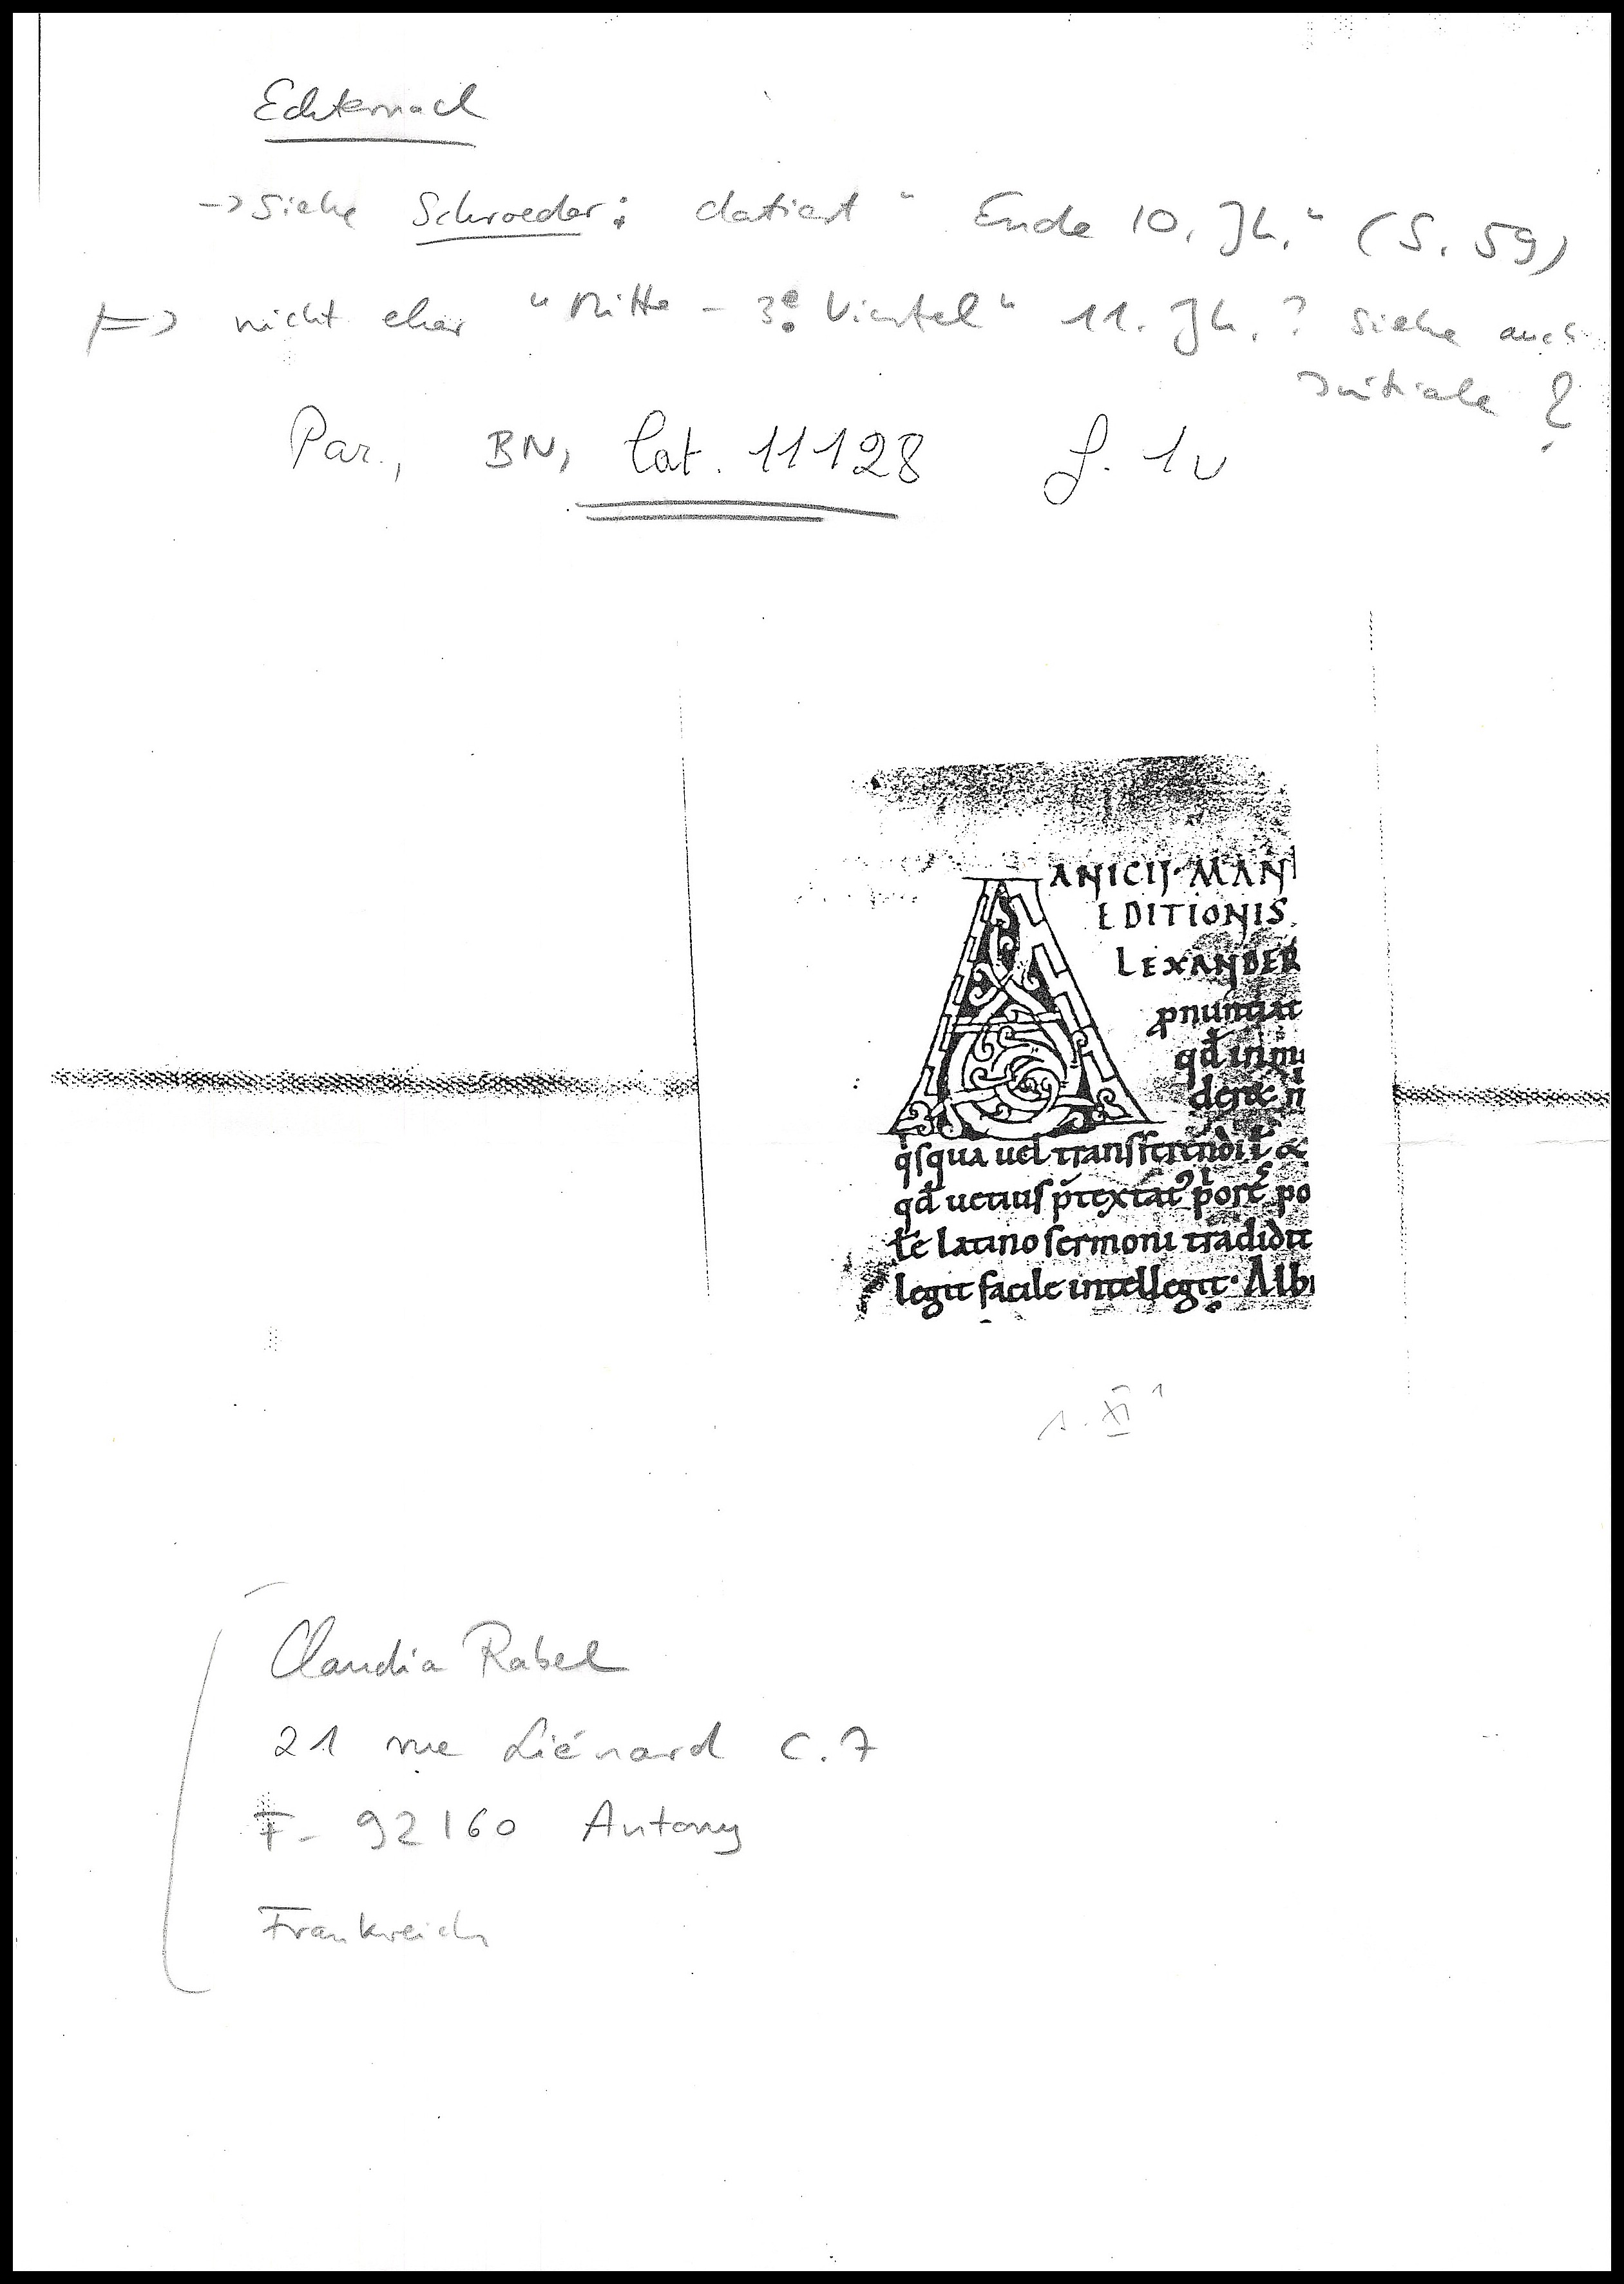 Echternach
-> siehe Schroeder: datiert "Ende 10. Jh." (S. 59)
|=> nicht eher "Mitte - 3. Viertel" 11. Jh.? siehe auch
Initiale ?
Par., BN, lat. 11128 f. 1v
ANICII·MAN
EDITIONIS
LEXANDER
ꝓnuntiat
qđ inmu
q̇sq̇ua uel transferendi
qđ uetius p̄textat
te latino sermoni tradidit
legit facile intellegit· Albi
s. XI¹
Claudia Rabel
21 rue Liénard C.7
F- 92160 Antony
Frankreich